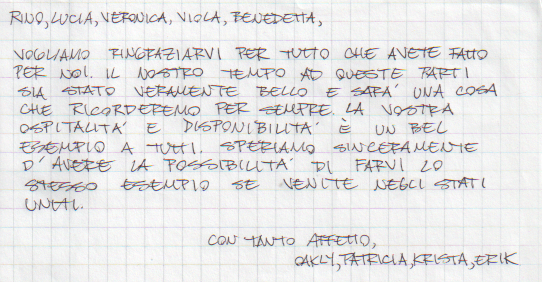 RINO, LUCIA, VERONICA, VIOLA, BENEDETTA,
VOGLIAMO RINGRAZIARVI PER TUTTO CHE AVETE FATTO
PER NOI. IL NOSTRO TEMPO AD QUESTE PARTI
SIA STATO VERAMENTE BELLO E SARA' UNA COSA
CHE RICORDEREMO PER SEMPRE. LA VOSTRA
OSPITALITA' E DISPONIBILITA' È UN BEL
ESEMPIO A TUTTI. SPERIAMO SINCERAMENTE
D'AVERE LA POSSIBILITA' DI FARVI LO
STESSO ESEMPIO SE VENITE NEGLI STATI
UNITI.
CON TANTO AFFETTO,
OAKLY, PATRICIA, KRISTA, ERIK